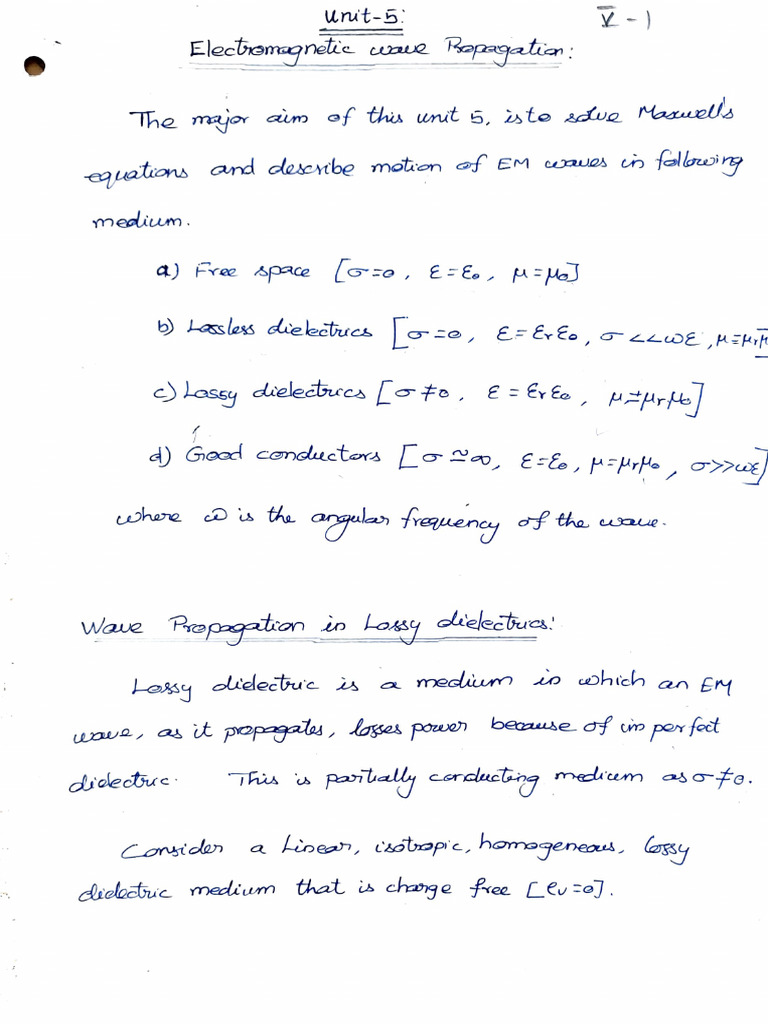 Unit-5:
V - 1
Electromagnetic wave Propagation:
The major aim of this unit 5, is to solve Maxwell's
equations and describe motion of EM waves in following
medium.
a) Free space [σ=0, ε=ε₀, μ=μ₀]
b) Lossless dielectrics [σ=0, ε=εᵣε₀, σ<<ωε, μ=μᵣμ
c) Lossy dielectrics [σ≠0, ε=εᵣε₀, μ=μᵣμ₀]
d) Good conductors [σ≃∞, ε=ε₀, μ=μᵣμ₀, σ>>ωε]
where ω is the angular frequency of the wave.
Wave Propagation in Lossy dielectrics:
Lossy dielectric is a medium in which an EM
wave, as it propagates, losses power because of imperfect
dielectric. This is partially conducting medium as σ≠0.
Consider a Linear, isotropic, homogeneous, lossy
dielectric medium that is charge free [ρᵥ=0].